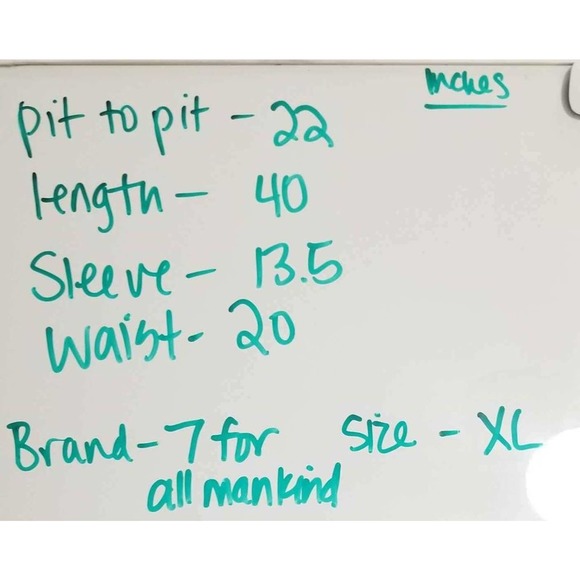 Inches
pit to pit - 22
length - 40
Sleeve - 13.5
waist - 20
Brand - 7 for all mankind
Size - XL